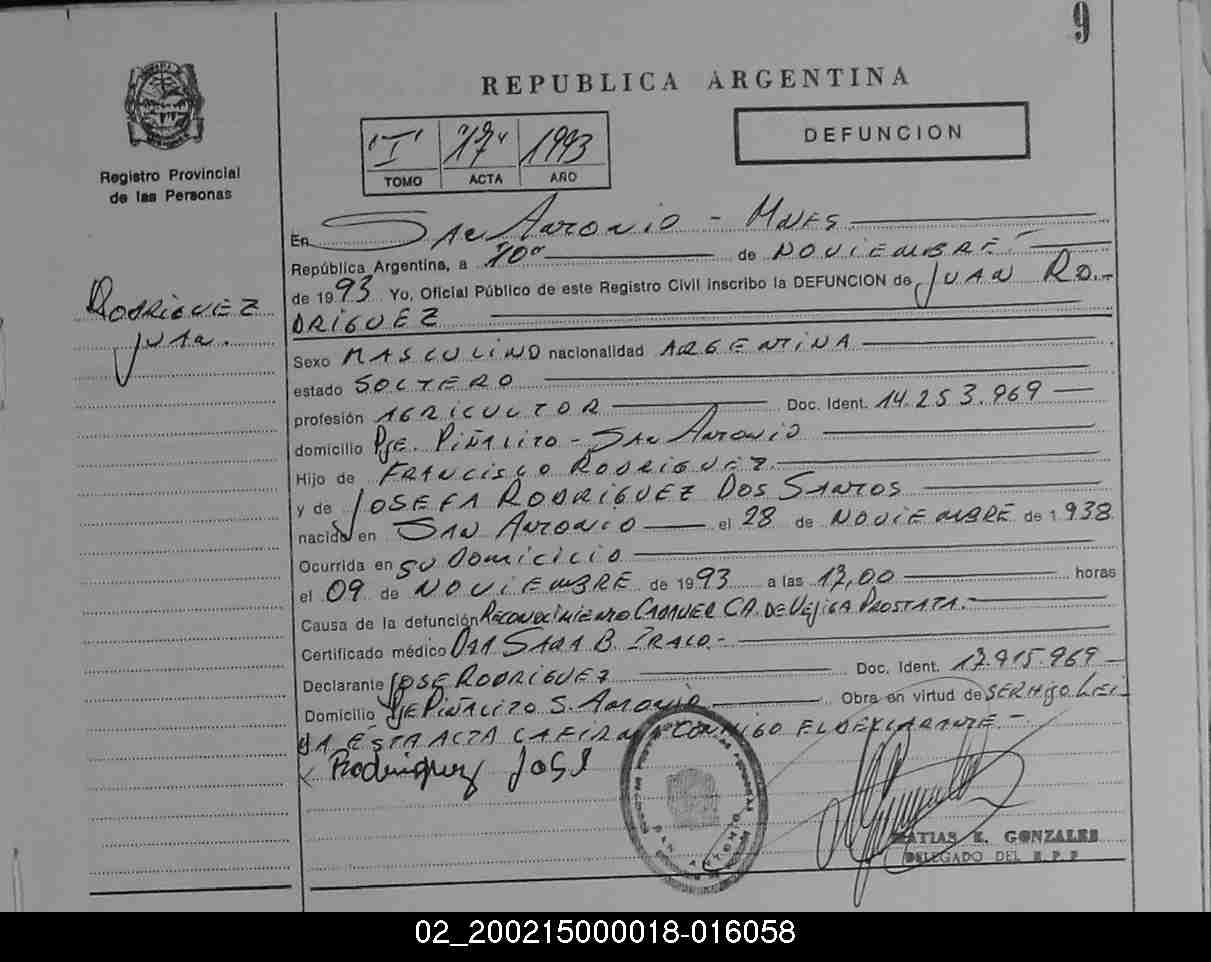 9
REPUBLICA ARGENTINA
Registro Provincial
de las Personas
"I" "17" 1993
TOMO ACTA AÑO
DEFUNCION
RODRIGUEZ
JUAN.
En SAN ANTONIO - MNES.
República Argentina, a 10 de NOVIEMBRE
de 1993 Yo, Oficial Público de este Registro Civil inscribo la DEFUNCION de JUAN RO-
DRIGUEZ
Sexo MASCULINO nacionalidad ARGENTINA
estado SOLTERO
profesión AGRICULTOR Doc. Ident. 14.253.969
domicilio PJE. PIÑALITO - SAN ANTONIO
Hijo de FRANCISCO RODRIGUEZ.
y de JOSEFA RODRIGUEZ DOS SANTOS
nacido en SAN ANTONIO el 28 de NOVIEMBRE de 1.938
Ocurrida en SU DOMICILIO
el 09 de NOVIEMBRE de 1993 a las 17,00 horas
Causa de la defunción RECONOCIMIENTO CADAVER CA. DE VEJIGA PROSTATA.
Certificado médico DRA SARA B.
Declarante JOSE RODRIGUEZ Doc. Ident. 17.915.969
Domicilio PJE PIÑALITO S. ANTONIO Obra en virtud de SER HIJO LEI-
DA ESTA ACTA LA FIRMA CONMIGO EL DECLARANTE -
Rodriguez José
SAN ANTONIO
MATIAS E. GONZALES
DELEGADO DEL R.P.P
02_200215000018-016058